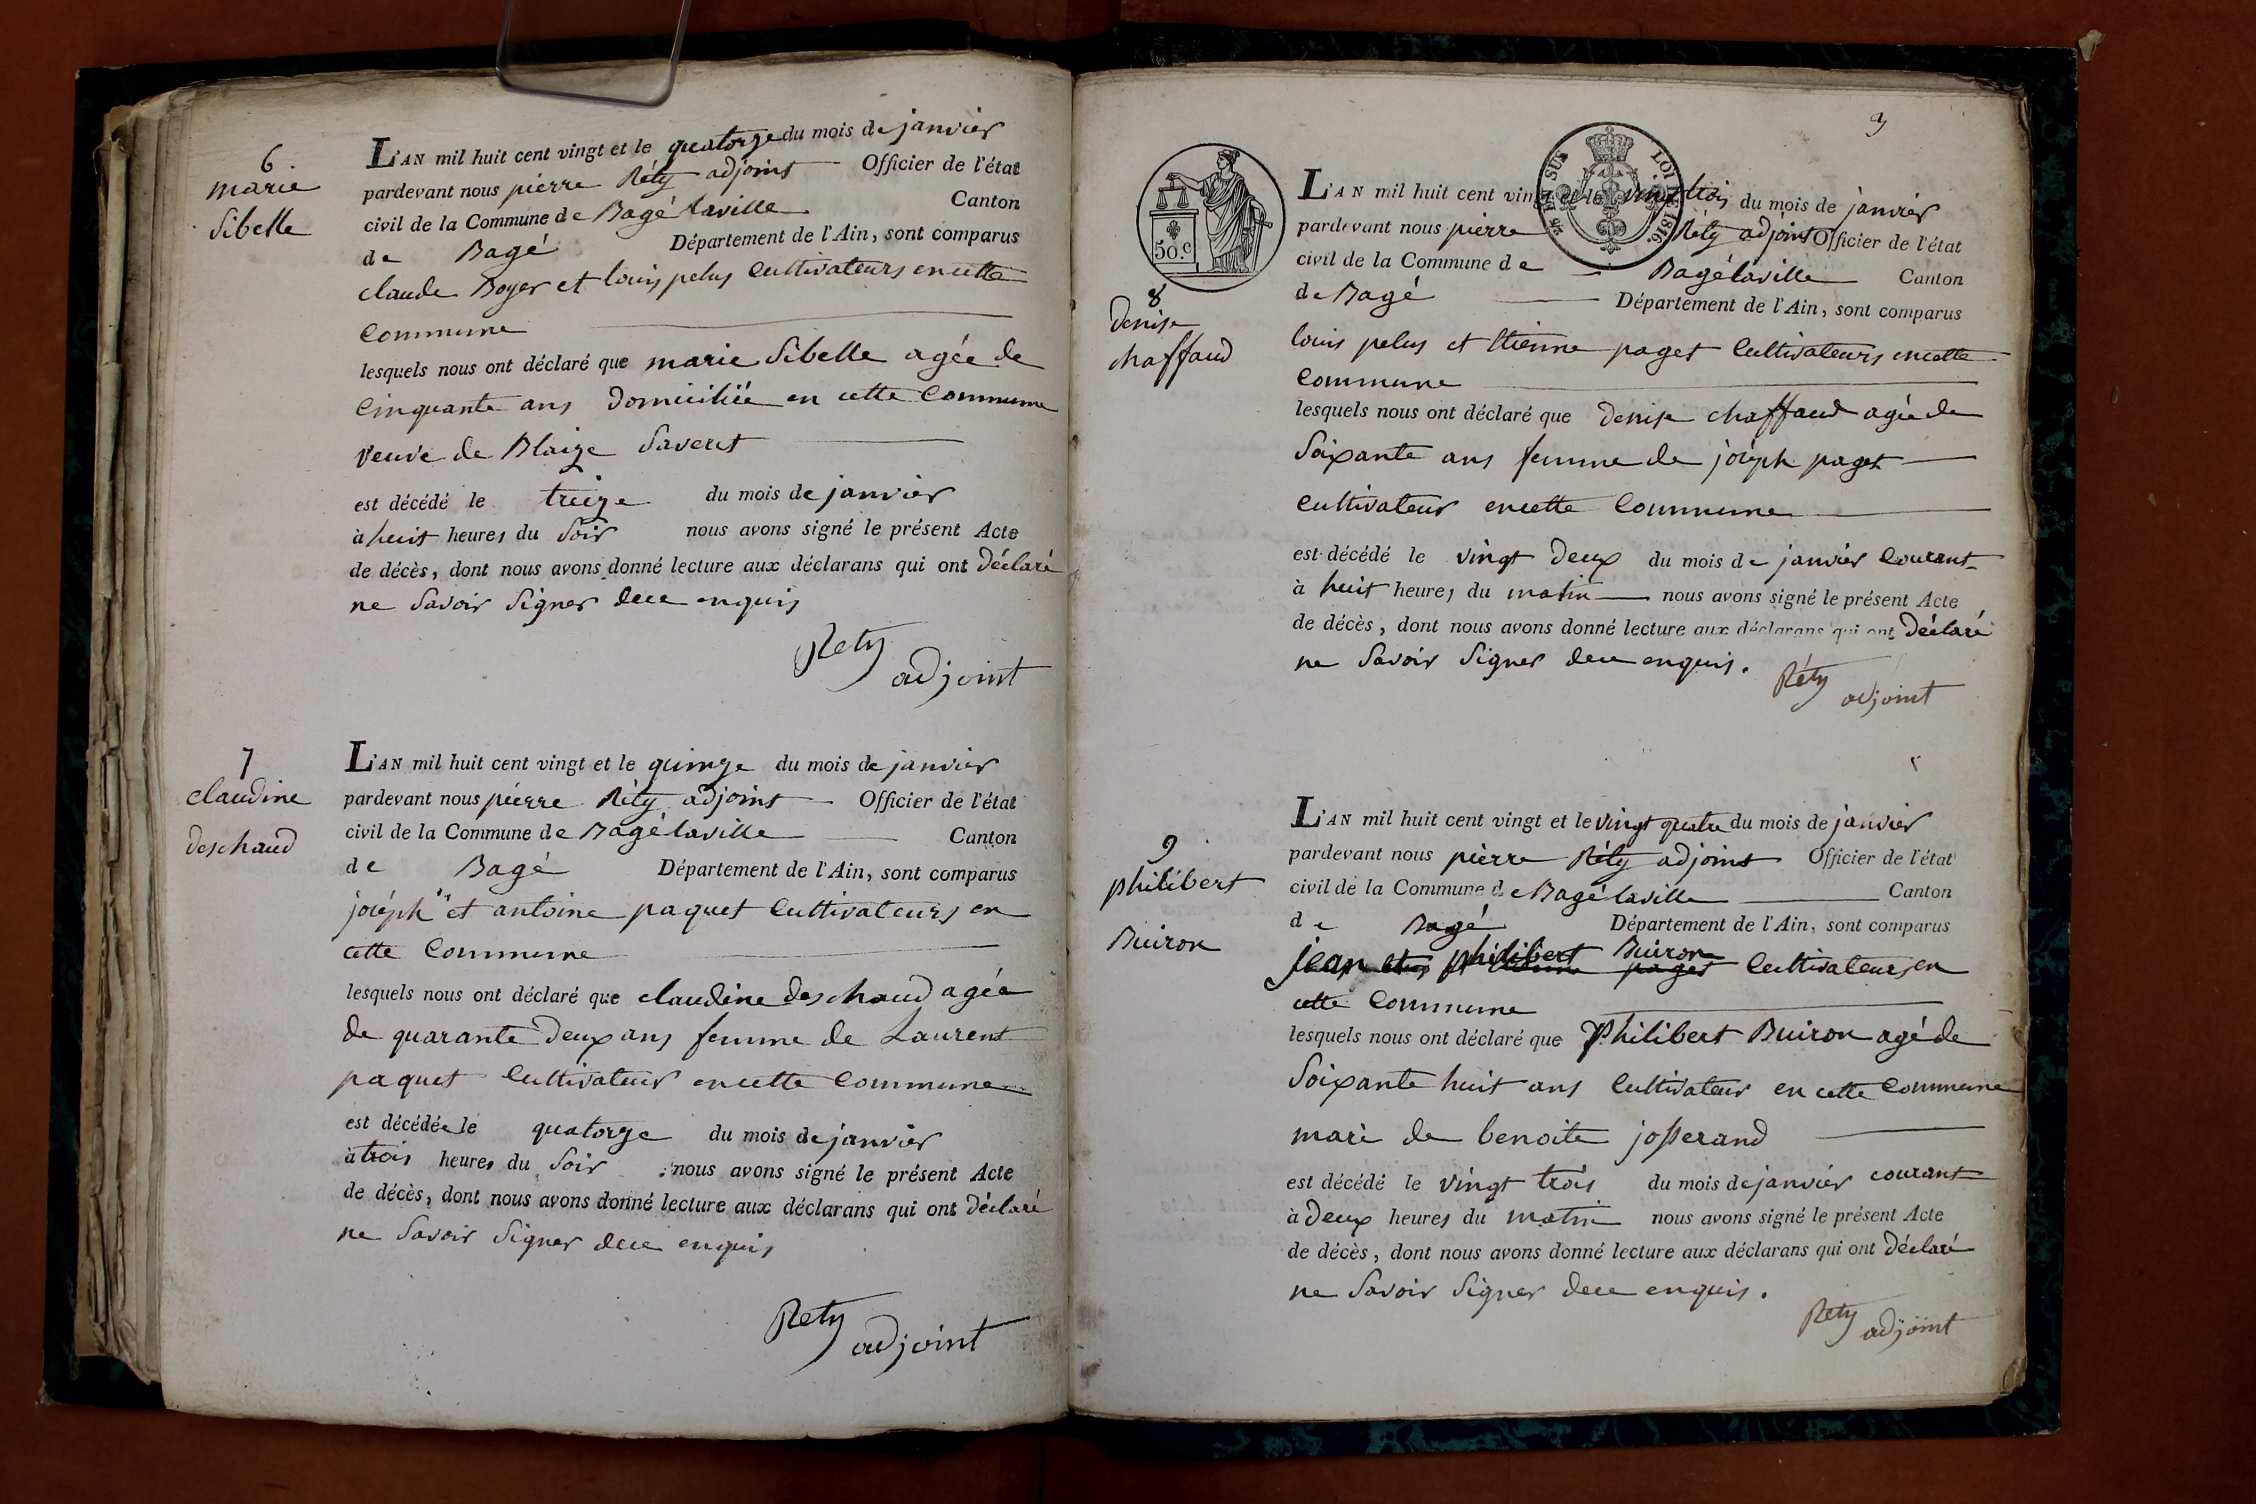 6.
marie
Sibelle
L'AN mil huit cent vingt et le quatorze du mois de janvier
pardevant nous pierre Réty adjoint Officier de l'état
civil de la Commune de Bagé laville Canton
de Bagé Département de l'Ain, sont comparus
claude Boyer et louis pelus Cultivateurs en cette
Commune
lesquels nous ont déclaré que marie Sibelle agée de
Cinquante ans domiciliée en cette Commune
veuve de Blaize Saveret
est décédé le treize du mois de janvier
à huit heures du Soir nous avons signé le présent Acte
de décès, dont nous avons donné lecture aux déclarans qui ont déclaré
ne Savoir Signer de ce enquis
Rety
adjoint
7
claudine
deschaud
L'AN mil huit cent vingt et le quinze du mois de janvier
pardevant nous pierre Réty adjoint Officier de l'état
civil de la Commune de Bagé laville Canton
de Bagé Département de l'Ain, sont comparus
joséph et antoine paquet Cultivateurs en
cette Commune
lesquels nous ont déclaré que claudine deschaud agée
de quarante deux ans femme de Laurent
paquet Cultivateur en cette Commune
est décédée le quatorze du mois de janvier
à trois heures du Soir nous avons signé le présent Acte
de décès, dont nous avons donné lecture aux déclarans qui ont déclaré
ne Savoir Signer de ce enquis
Rety
adjoint
3
50.c
LOI DE 1816.
EN SUS
8
denise
chaffaud
L'AN mil huit cent vingt et le vingt trois du mois de janvier
pardevant nous pierre Réty adjoint Officier de l'état
civil de la Commune de Bagé laville Canton
de Bagé Département de l'Ain, sont comparus
louis pelus et Etienne paget Cultivateurs en cette
Commune
lesquels nous ont déclaré que denise chaffaud agée de
Soixante ans femme de joséph paget
Cultivateur en cette Commune
est décédé le vingt deux du mois de janvier Courant
à huit heures du matin nous avons signé le présent Acte
de décès, dont nous avons donné lecture aux déclarans qui ont déclaré
ne Savoir Signer de ce enquis.
Réty
adjoint
9
philibert
Buiron
L'AN mil huit cent vingt et le vingt quatre du mois de janvier
pardevant nous pierre Réty adjoint Officier de l'état
civil de la Commune de Bagé laville Canton
de Bagé Département de l'Ain, sont comparus
jean et philibert Buiron Cultivateurs en
cette Commune
lesquels nous ont déclaré que Philibert Buiron agé de
Soixante huit ans Cultivateur en cette Commune
mari de benoite josserand
est décédé le vingt trois du mois de janvier courant
à deux heures du matin nous avons signé le présent Acte
de décès, dont nous avons donné lecture aux déclarans qui ont déclaré
ne Savoir Signer de ce enquis.
Rety
adjoint